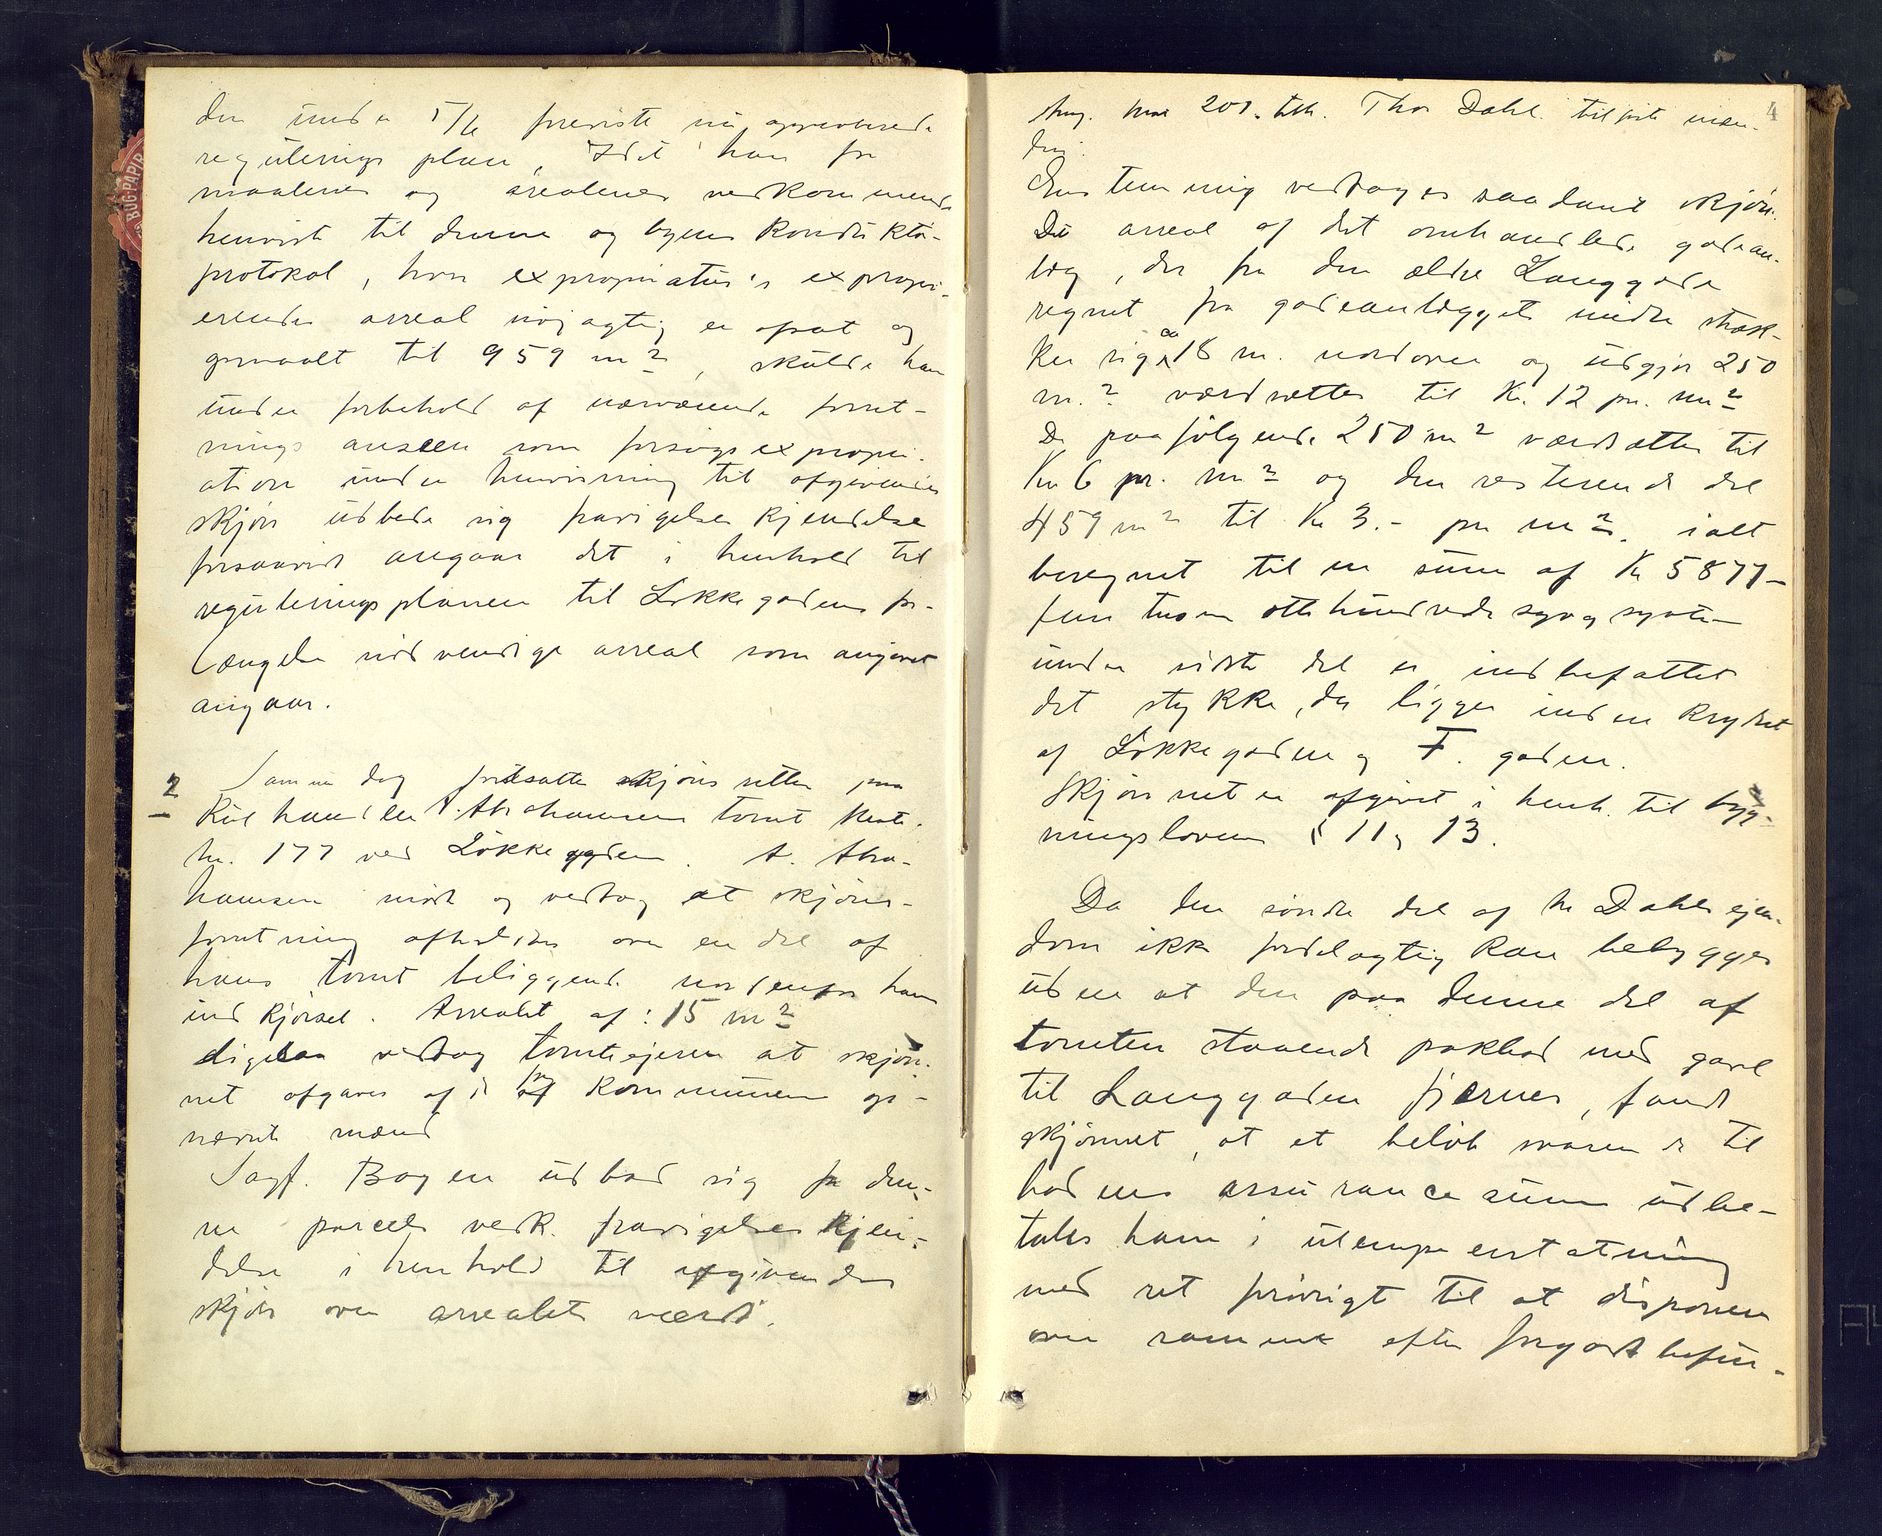 den under 5/6 foreviste nu approberede
reguleringsplan, Idet han for
maalenes og arealenes vedkommende
henviste til denne og byens Konduktø-
protokol, hvor expropriatus's expropri-
erende arreal nøjagtig er opsat og
opmaalt til 959 m2, skulde han
under forbehold af nærværende forret-
nings anseen som forsøgsexpropri-
ation under henvisning til afgivendes
skjøn udbede sig fravigelseskjendelse
forsaavidt angaar det i henhold til
reguleringsplanen til Løkkegadens for-
længelse nødvendige arreal som angivet
angaar.
2 Samme dag fortsatte skjønsretten paa
Kulhandler A. Abrahamsens tomt Matr.
nr. 177 ved Løkkegaden. A. Abra-
hamsen mødte og vedtog at skjøns-
forretning afholdtes over en del af
hans tomt beliggende nordenfor hans
indkjørsel. Arrealet af: 15 m2
Ligesaa vedtog tomteejeren at skjøn-
net afgaves af de for Kommunen op-
nævnte mænd
Sagf. Bogen udbad sig for den-
ne parcels vedk. fravigelseskjen-
delse i henhold til afgivendes
skjøn over arrealets værdi.
4
Ang. Matr 201. tilh. Thor Dahl. tilførte mæn-
dene:
Enstemmig vedtoges saadant skjøn.
Det arreal af det omhandlede gadean-
læg, der fra den ældre Langgade
regnet fra gadeanlæggets midte stræk-
ker sig ca 18 m. nordover og udgjør 250
m.2 værdsættes til Kr. 12 pr. m2
De paafølgende 250 m2 værdsættes til
Kr 6 pr. m2 og den resterende del
459 m2 til Kr 3.- pr m2. ialt
beregnet til en sum af Kr 5877-
fem tusen otte hundrede syv og sytti-
under sidste del er indbefattet
det stykke, der ligger inden Krydset
af Løkkegaden og F. gaden.
Skjønnet er afgivet i henh. til byg-
ningslovens § 11 og 13.
Da den søndre del af hr Dahls ejen-
dom ikke fordelagtig kan bebygges
uden at den paa denne del af
tomten staaende pakbod med gavl
til Langgaden fjernes, fandt
skjønnet, at et beløb svarende til
bodens assurancesum udbe-
tales ham i ulempeerstatning
med ret forøvrigt til at disponere
over samme efter forgodtbefin-